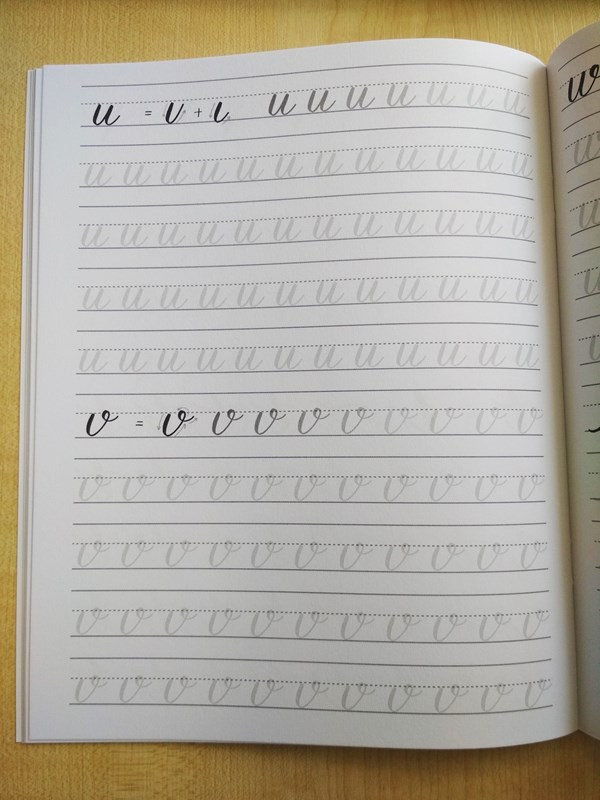 u = v + ı u u u u u u u
u u u u u u u u u u u u
u u u u u u u u u u u u
u u u u u u u u u u u u
u u u u u u u u u u u u
v = v v v v v v v v v
v v v v v v v v v v v
v v v v v v v v v v v
v v v v v v v v v v v
v v v v v v v v v v v
w